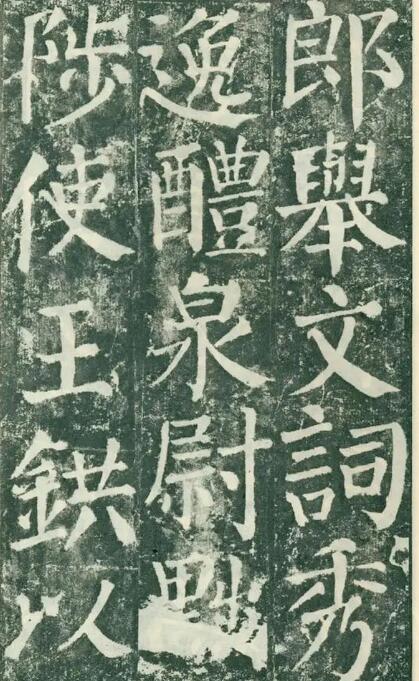 郎舉文詞秀
逸醴泉尉黜
陟使王鉷以